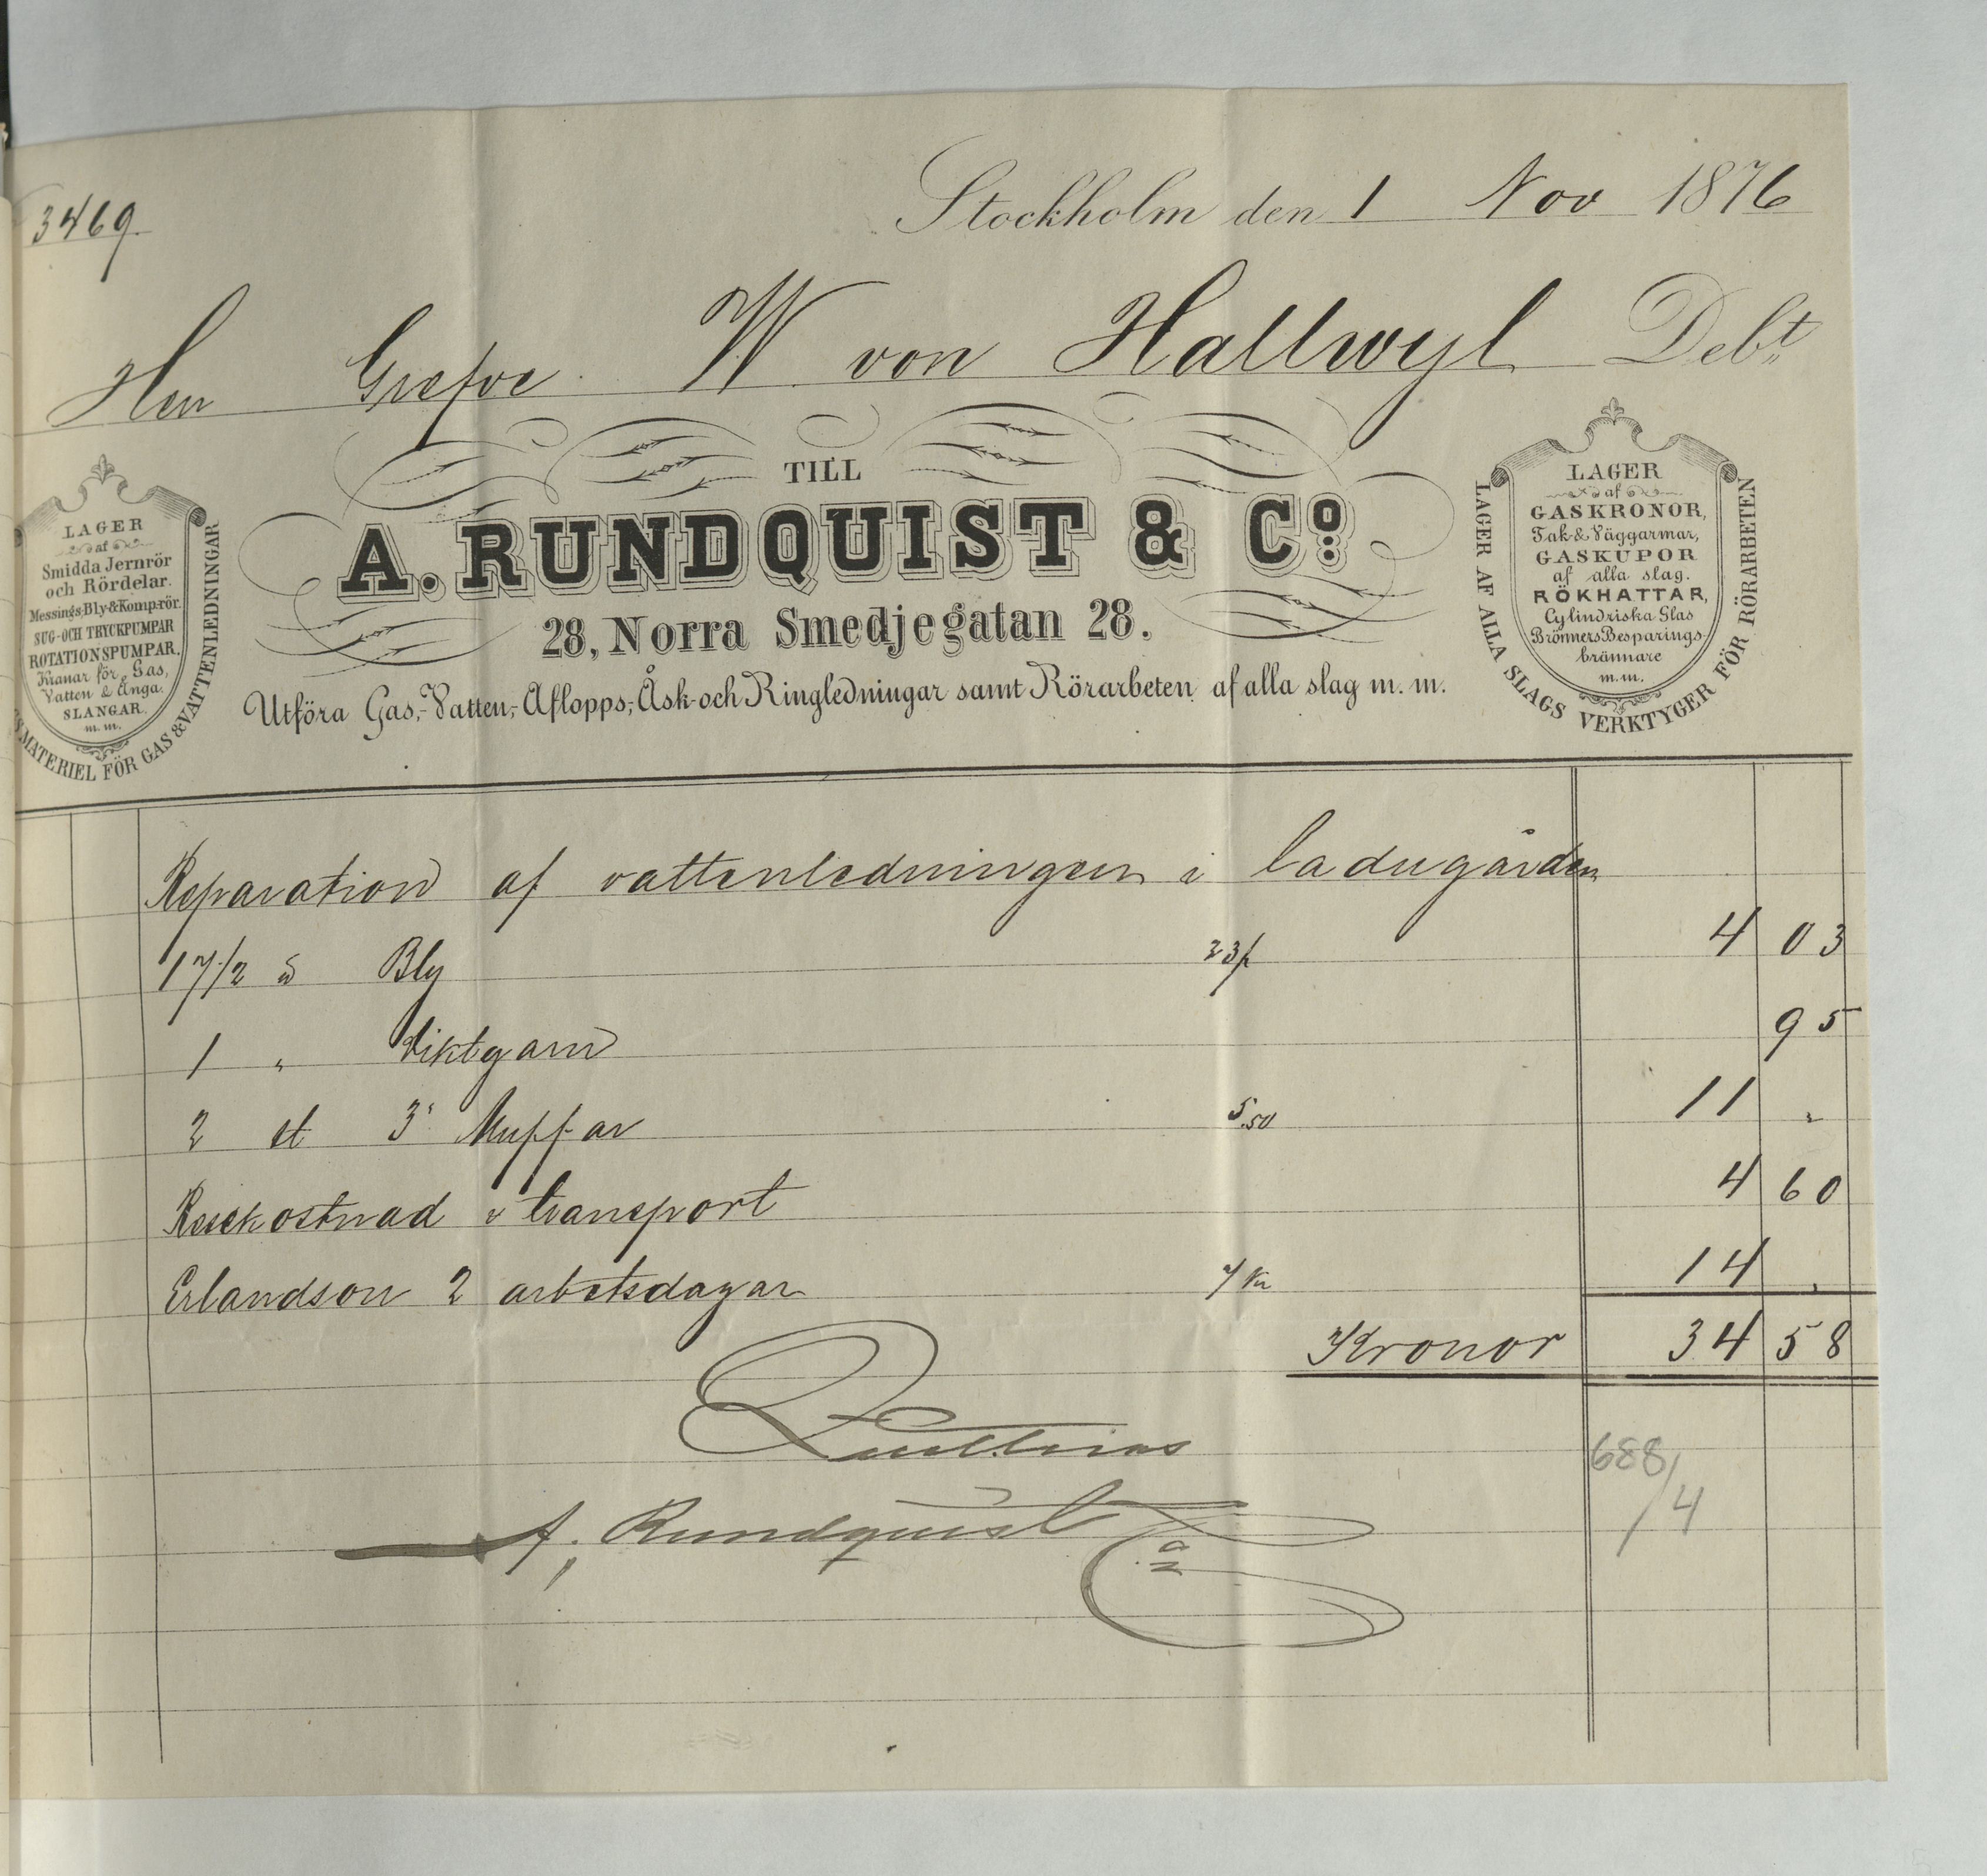 3469.
Stockholm den 1 Nov 1876
Herr Grefve W von Hallwyl Debt
TILL
A. RUNDQUIST & Co.
28, Norra Smedjegatan 28.
Utföra Gas,-Vatten,-Aflopps,-Åsk-och Ringledningar samt Rörarbeten af alla slag m. m.
LAGER
af
Smidda Jernrör
och Rördelar.
Messings-Bly-& Komp-rör.
SUG-OCH TRYCKPUMPAR
ROTATIONSPUMPAR.
Kranar för Gas,
Vatten & Ånga.
SLANGAR.
m. m.
MATERIEL FÖR GAS & VATTENLEDNINGAR
LAGER
af
GASKRONOR,
Tak-& Väggarmar,
GASKUPOR
af alla slag.
RÖKHATTAR,
Cylindriska Glas
Brönners Besparings-
brännare
m.m.
LAGER AF ALLA SLAGS VERKTYGER FÖR RÖRARBETEN
Reparation af vattenledningen i ladugården
17 1/2 Bly 23 4 03
1 " 95
2 st 3" Muffar 5.50 11 "
Resekostnad & transport 4 60
Erlandson 2 arbetsdagar 7 Kr 14 "
Kronor 34 58
Quitteras
A. Rundquist & Co
688/4